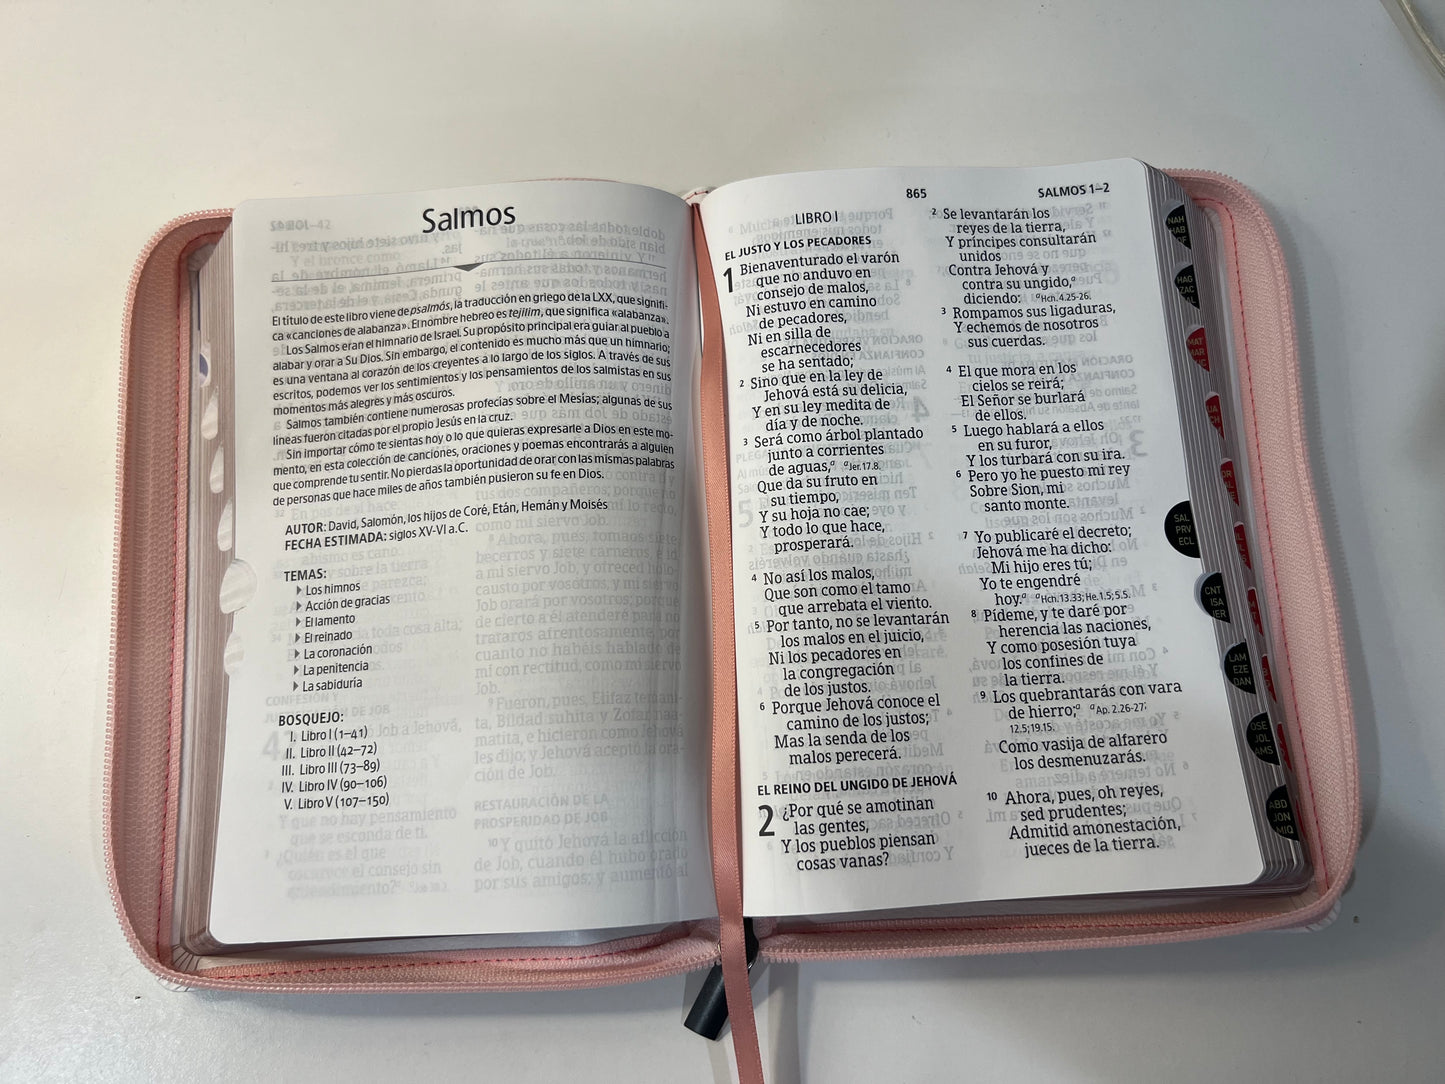 Salmos
El título de este libro viene de psalmós, la traducción en griego de la LXX, que signifi-
ca «canciones de alabanza». El nombre hebreo es tejilim, que significa «alabanza».
Los Salmos eran el himnario de Israel. Su propósito principal era guiar al pueblo a
alabar y orar a Su Dios. Sin embargo, el contenido es mucho más que un himnario;
es una ventana al corazón de los creyentes a lo largo de los siglos. A través de sus
escritos, podemos ver los sentimientos y los pensamientos de los salmistas en sus
momentos más alegres y más oscuros.
Salmos también contiene numerosas profecías sobre el Mesías; algunas de sus
líneas fueron citadas por el propio Jesús en la cruz.
Sin importar cómo te sientas hoy o lo que quieras expresarle a Dios en este mo-
mento, en esta colección de canciones, oraciones y poemas encontrarás a alguien
que comprende tu sentir. No pierdas la oportunidad de orar con las mismas palabras
de personas que hace miles de años también pusieron su fe en Dios.
AUTOR: David, Salomón, los hijos de Coré, Etán, Hemán y Moisés
FECHA ESTIMADA: siglos XV-VI a.C.
TEMAS:
Los himnos
Acción de gracias
El lamento
El reinado
La coronación
La penitencia
La sabiduría
BOSQUEJO:
I. Libro I (1–41)
II. Libro II (42–72)
III. Libro III (73–89)
IV. Libro IV (90–106)
V. Libro V (107–150)
865
SALMOS 1–2
LIBRO I
EL JUSTO Y LOS PECADORES
1 Bienaventurado el varón
que no anduvo en
consejo de malos,
Ni estuvo en camino
de pecadores,
Ni en silla de
escarnecedores
se ha sentado;
2 Sino que en la ley de
Jehová está su delicia,
Y en su ley medita de
día y de noche.
3 Será como árbol plantado
junto a corrientes
de aguas,a aJer. 17.8.
Que da su fruto en
su tiempo,
Y su hoja no cae;
Y todo lo que hace,
prosperará.
4 No así los malos,
Que son como el tamo
que arrebata el viento.
5 Por tanto, no se levantarán
los malos en el juicio,
Ni los pecadores en
la congregación
de los justos.
6 Porque Jehová conoce el
camino de los justos;
Mas la senda de los
malos perecerá.
EL REINO DEL UNGIDO DE JEHOVÁ
2 ¿Por qué se amotinan
las gentes,
Y los pueblos piensan
cosas vanas?
2 Se levantarán los
reyes de la tierra,
Y príncipes consultarán
unidos
Contra Jehová y
contra su ungido,a
diciendo: aHch. 4.25-26.
3 Rompamos sus ligaduras,
Y echemos de nosotros
sus cuerdas.
4 El que mora en los
cielos se reirá;
El Señor se burlará
de ellos.
5 Luego hablará a ellos
en su furor,
Y los turbará con su ira.
6 Pero yo he puesto mi rey
Sobre Sion, mi
santo monte.
7 Yo publicaré el decreto;
Jehová me ha dicho:
Mi hijo eres tú;
Yo te engendré
hoy.a aHch. 13.33; He. 1.5; 5.5.
8 Pídeme, y te daré por
herencia las naciones,
Y como posesión tuya
los confines de
la tierra.
9 Los quebrantarás con vara
de hierro;a aAp. 2.26-27;
12.5; 19.15.
Como vasija de alfarero
los desmenuzarás.
10 Ahora, pues, oh reyes,
sed prudentes;
Admitid amonestación,
jueces de la tierra.
NAH
HAB
HAG
ZAC
MAT
MAR
SAL
PRV
ECL
CNT
ISA
JER
LAM
EZE
DAN
OSE
JOL
AMS
ABD
JON
MIQ